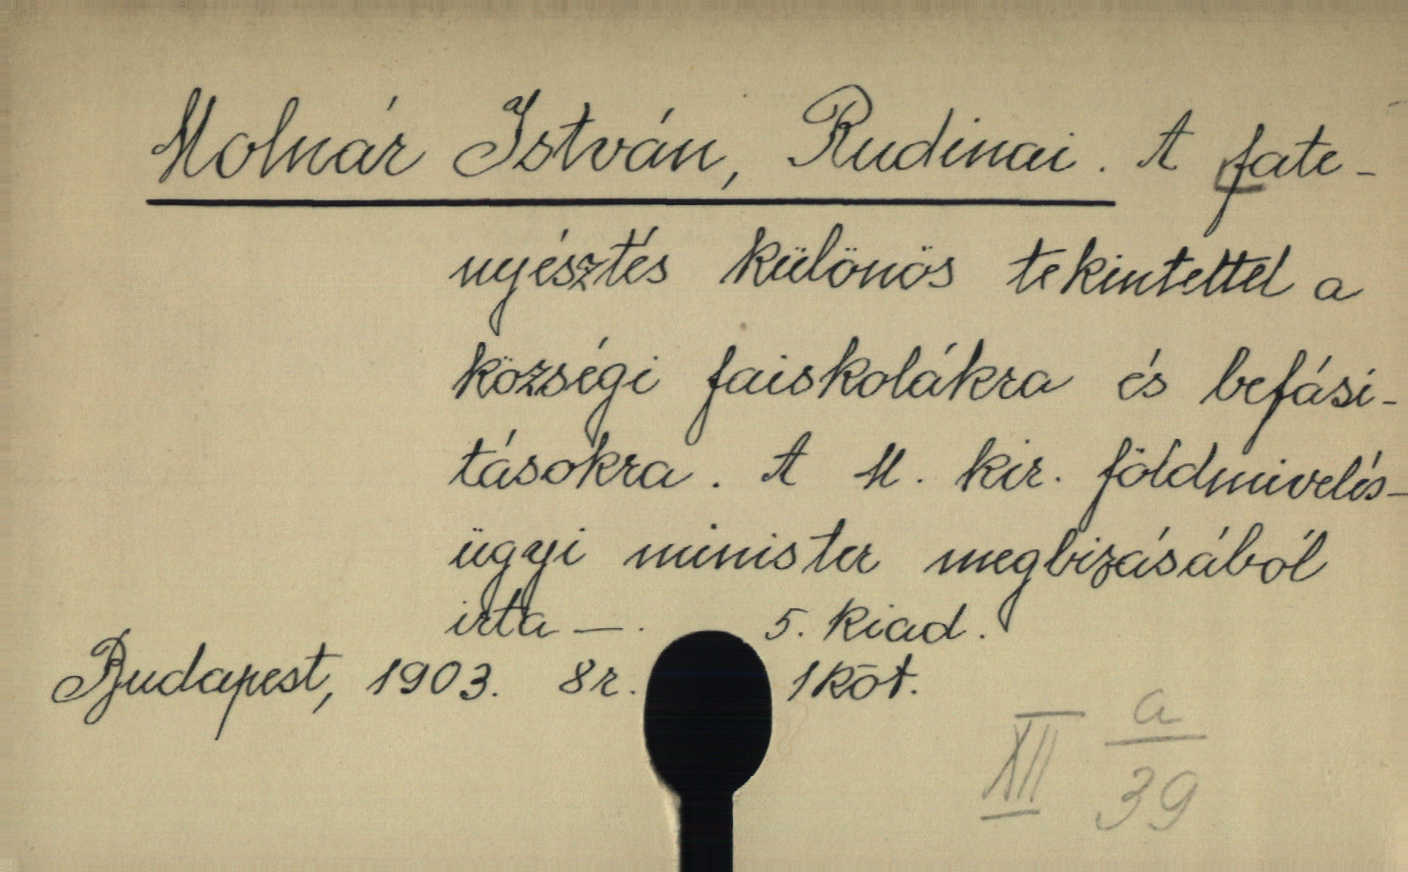 Molnár István, Rudinai. A fate-
nyésztés különös tekintettel a
községi faiskolákra és befási-
tásokra. A M. kir. földmivelés-
ügyi minister megbizásából
irta —. 5. kiad.
Budapest, 1903. 8r. 1 köt.
XII a/39